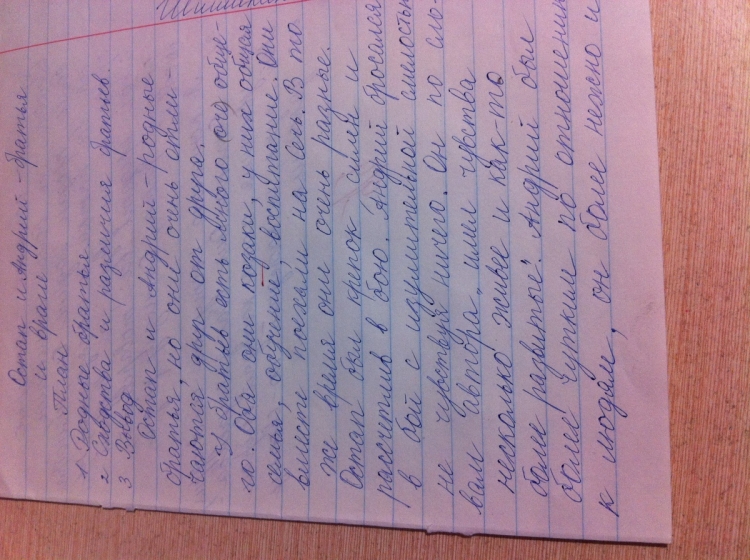 Остап и Андрий - братья
и враги
План
1 Родные братья
2 Сходства и различия братьев
3 Вывод
Остап и Андрий - родные
братья, но они очень отли-
чаются, друг от друга.
У братьев есть много обще-
го. Оба они козаки, у них общая
семья, обучение, воспитание. Они
вместе поехали на Сечь. В то
же время они очень разные.
Остап был крепок силен и
рассчетлив в бою. Андрий бросался
в бой с изумительной смелостью
не чувствуя ничего. Он по сло-
вам автора "имел чувства
несколько живее и как-то
более развитые". Андрий был
более чутким по отношению
к людям, он более нежно и